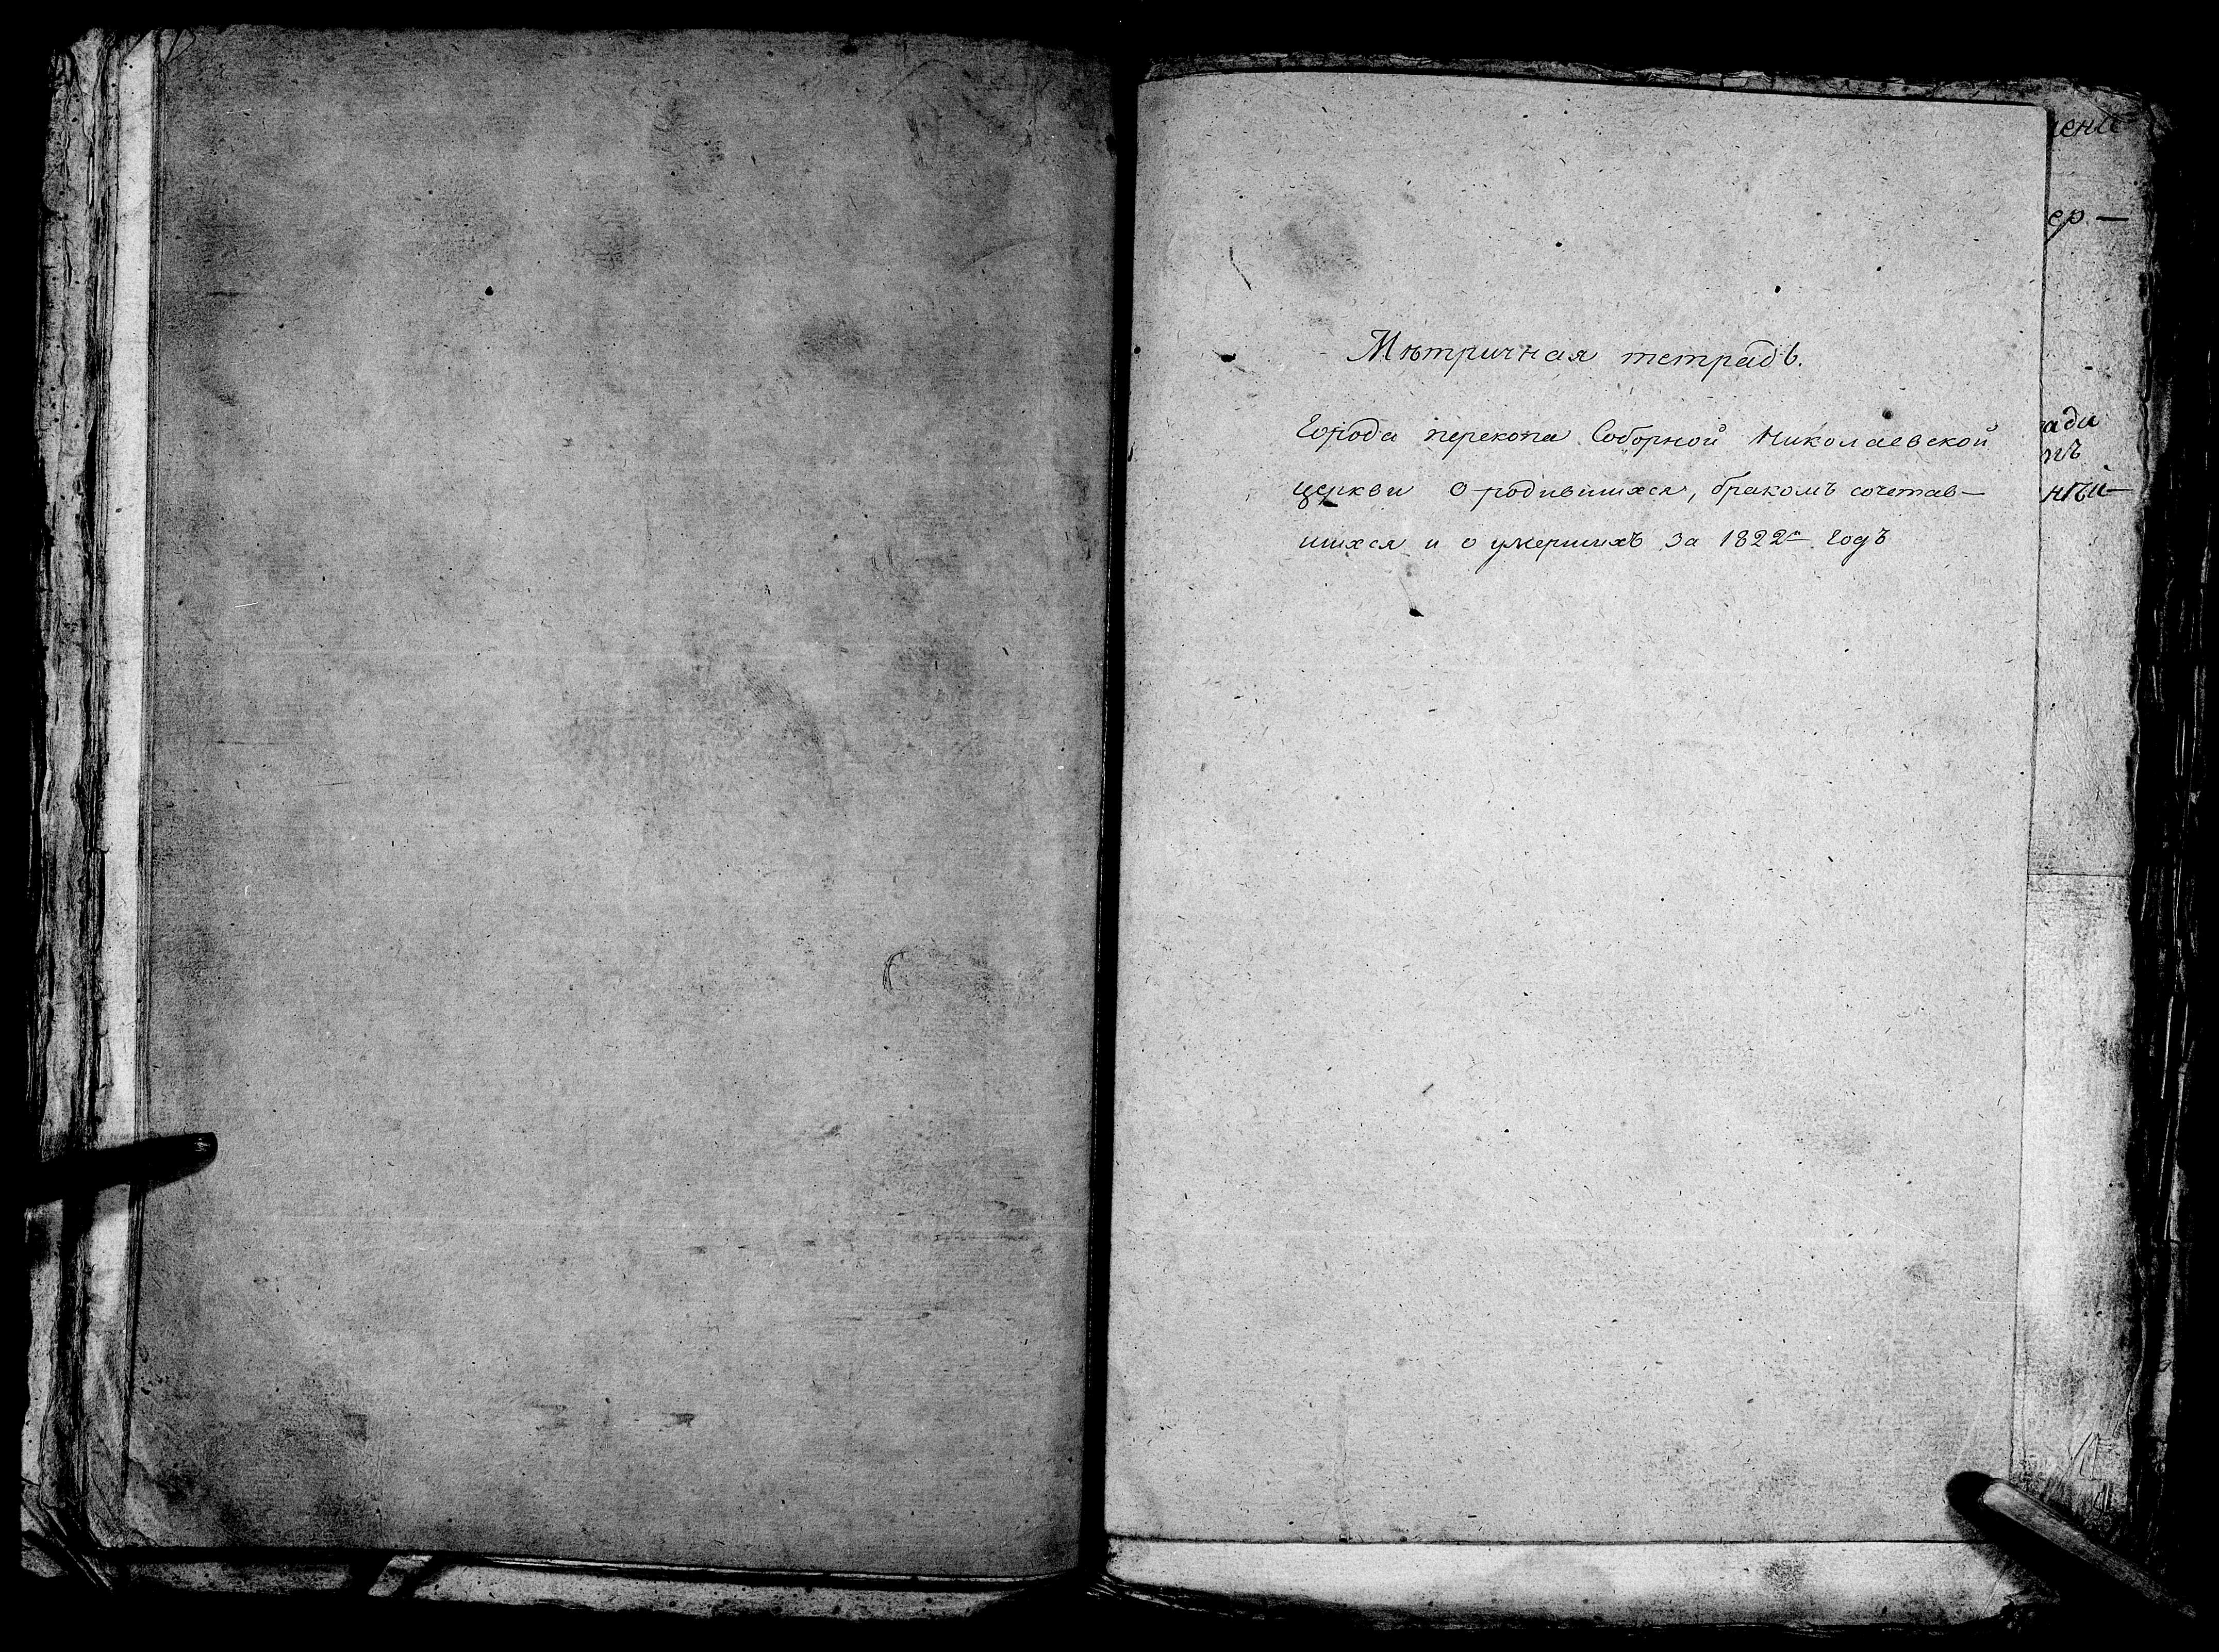 Мѣтричная тетрадь.
Города перекопа Соборной Николаевской
церкви о родившихся, бракомъ сочетав–
шихся и о умершихъ за 1822й годъ
ер –
ади